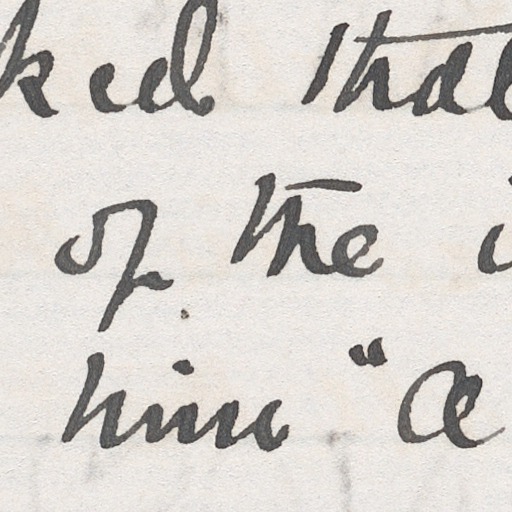 ked that
of the
him "